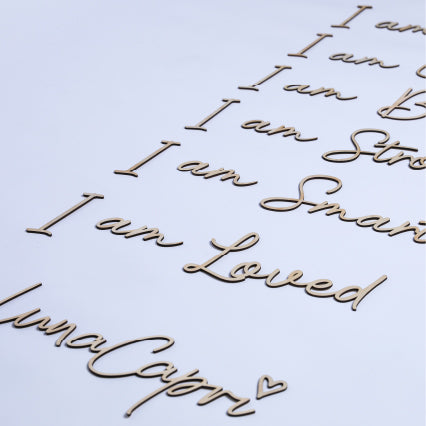 I am
I am
I am
I am
I am Smart
I am Loved
LunaCapri